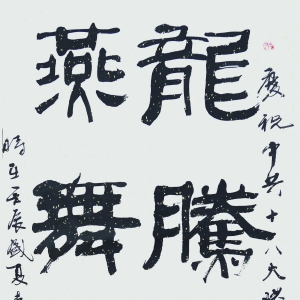 慶祝中共十八大
龍騰
燕舞
時在壬辰歲夏